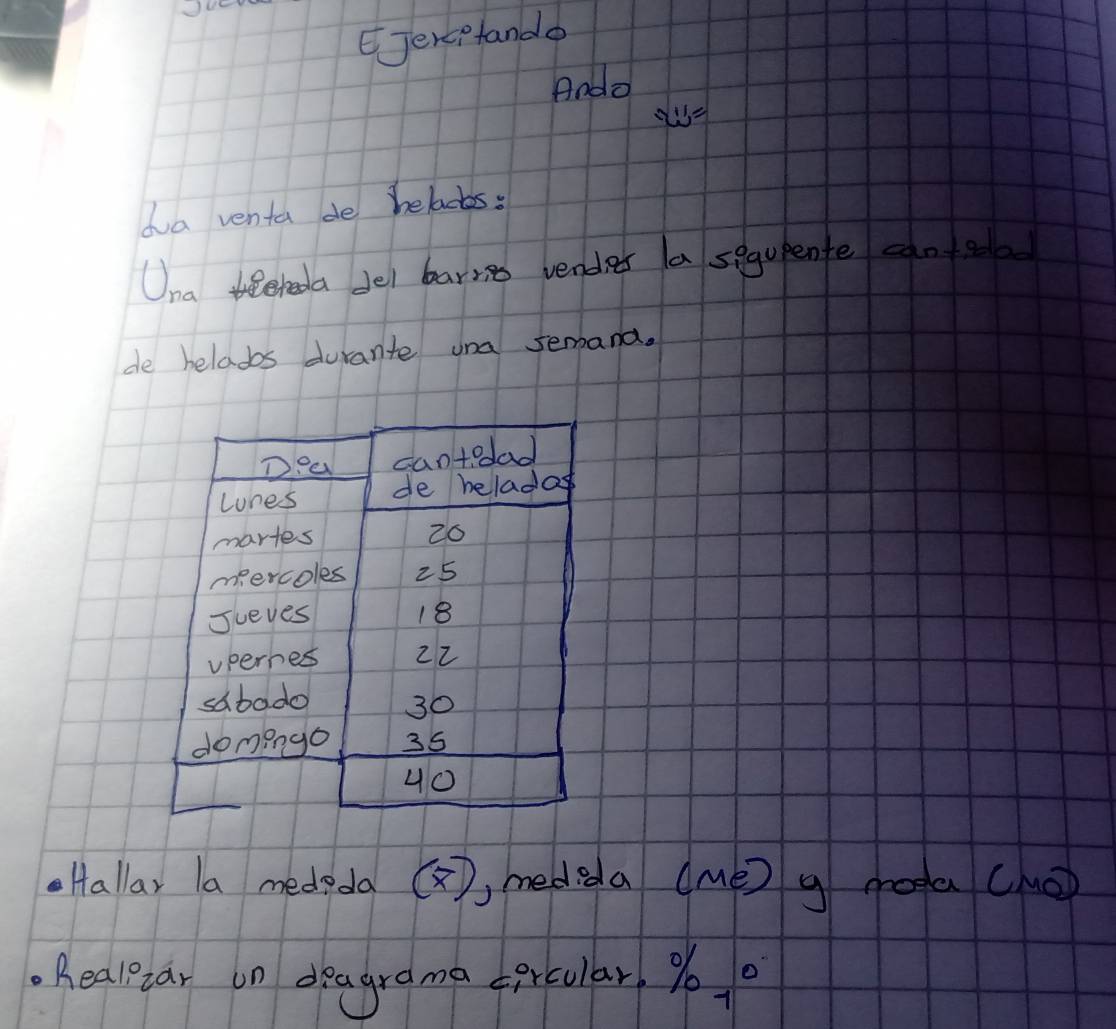 EJercitando
Ando
La venta de helados:
Una del barrio vendió la siguiente cantidad
de helados durante una semana.
Día cantidad
de helados
Lunes
martes 20
miercoles 25
Jueves 18
viernes 22
sábado 30
domingo 35
40
• Hallar la medida (x̄), medida (Me) y moda (Mo)
• Realizar un diagrama circular. % 1 °